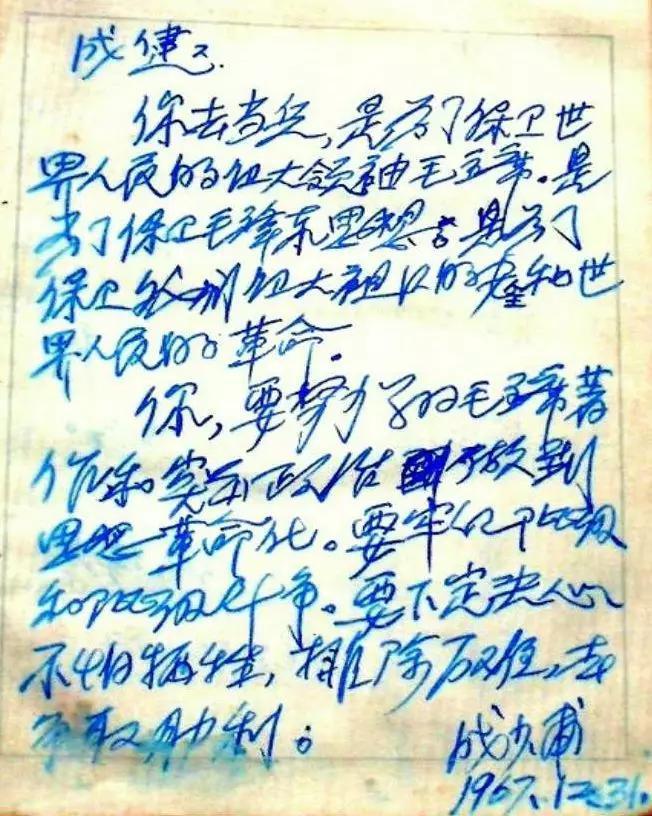 成健:
你去当兵,是为了保卫世
界人民的伟大领袖毛主席。是
为了保卫毛泽东思想。是为了
保卫我们伟大祖国的和世
界人民的革命。
你,要努力学习毛主席著
作和突出政治做到
思想革命化。要牢记阶级
和阶级斗争。要下定决心
不怕牺牲,排除万难,去
争取胜利。
成少甫
1967.12.31.